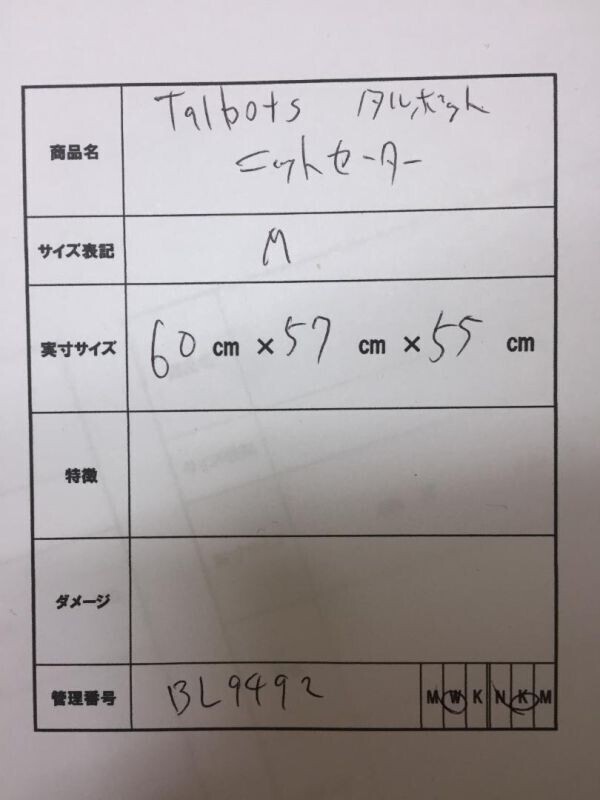 商品名
Talbots タルボット
ニットセーター
サイズ表記
M
実寸サイズ
60 cm ×57 cm ×55 cm
特徴
ダメージ
管理番号
BL9492
M W K N K M